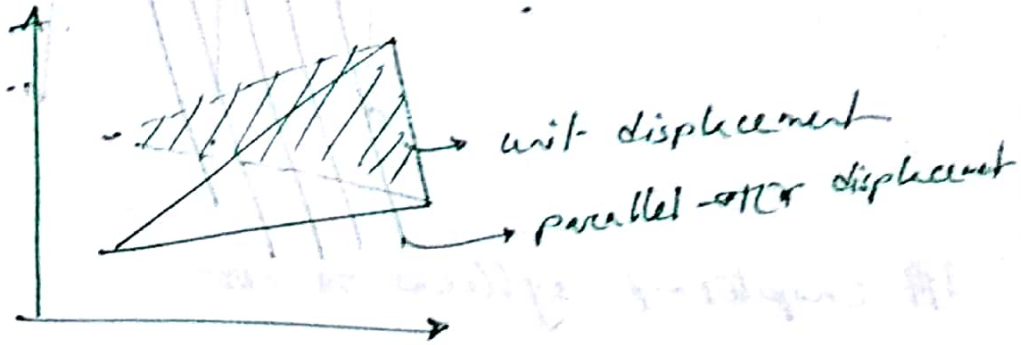 unit displacement
parallel displacement